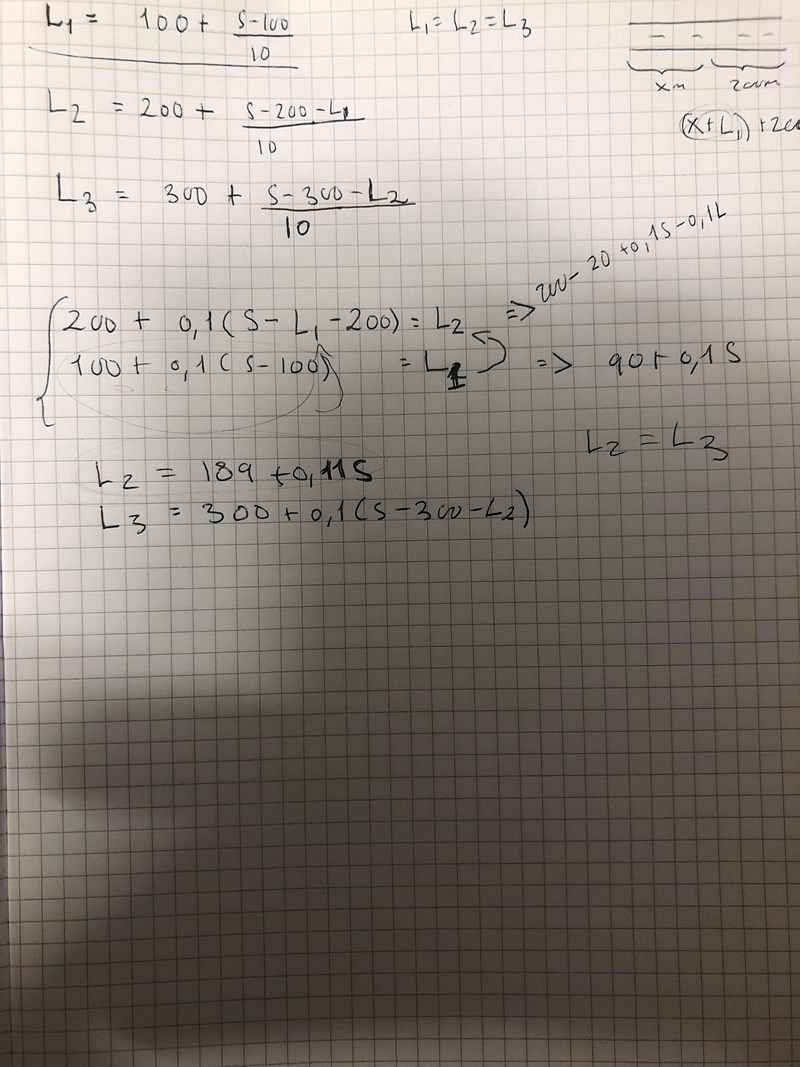 L₁ = 100 + (s-100)/10
L₁ = L₂ = L₃
xm 200m
(x+L₁)
L₂ = 200 + (s-200-L₁)/10
L₃ = 300 + (s-300-L₂)/10
200 + 0,1(s-L₁-200) = L₂ => 200-20+0,1s-0,1L
100 + 0,1(s-100) = L₁ => 90+0,1s
L₂ = L₃
L₂ = 189 + 0,11s
L₃ = 300 + 0,1(s-300-L₂)